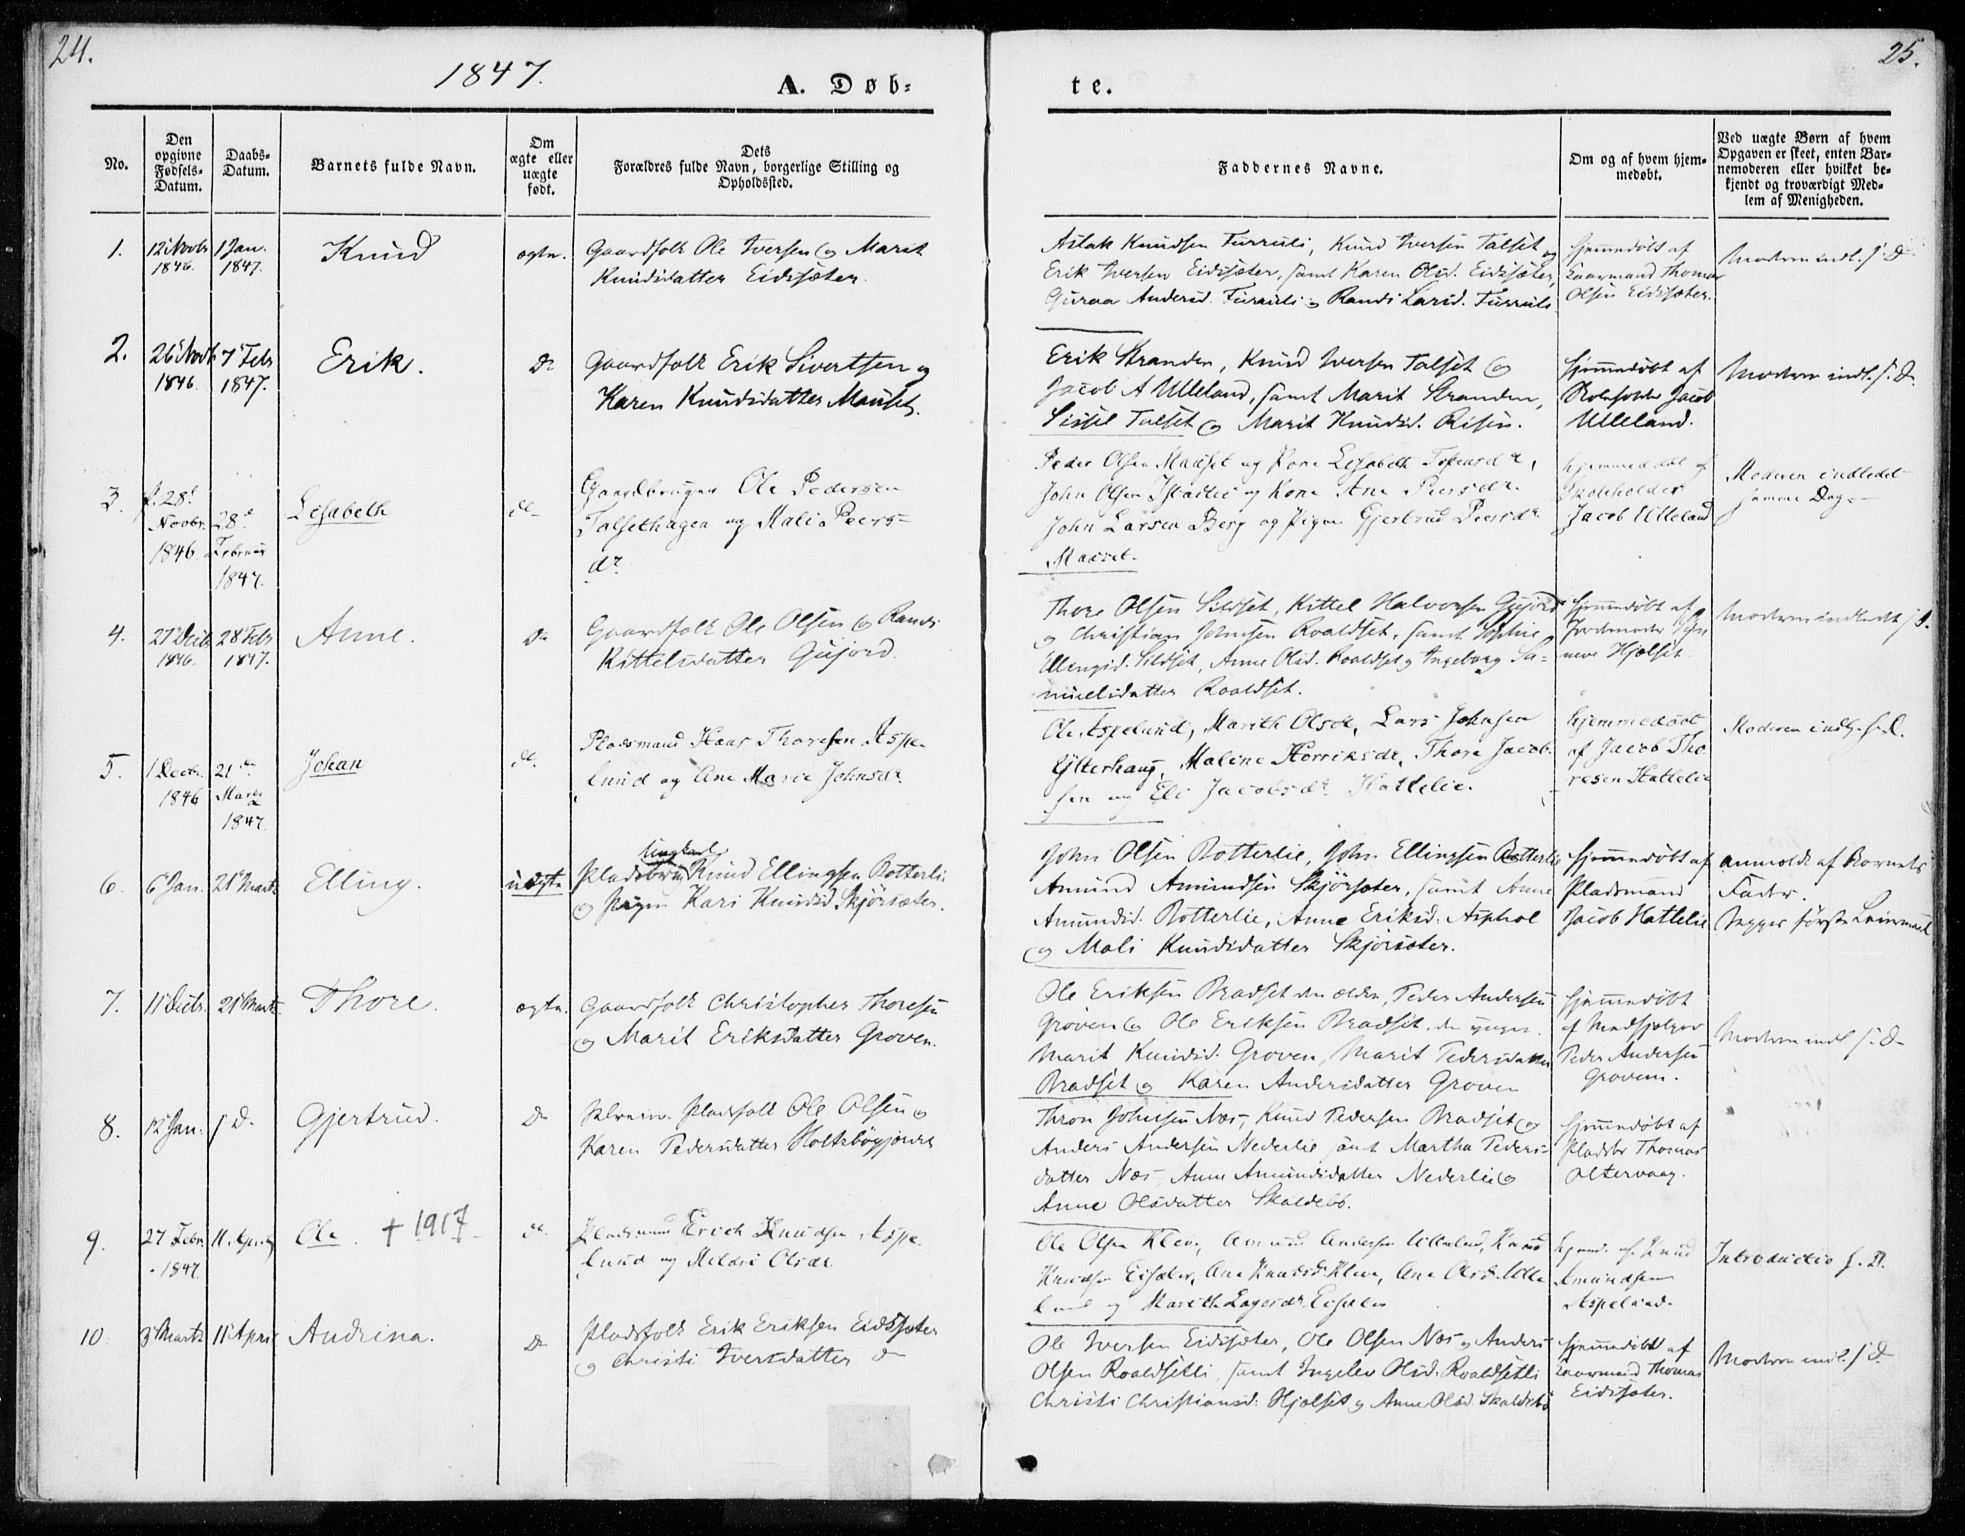 24.
25.
1847.
A. Døb-
te.
No.
Den opgivne Fødsels-Datum.
Daabs-Datum.
Barnets fulde Navn.
Om ægte eller uægte født.
Dets Forældres fulde Navn, borgerlige Stilling og Opholdssted.
Faddernes Navne.
Om og af hvem hjem-medøbt.
Ved uægte Børn af hvem Opgaven er skeet, enten Bar-nemoderen eller hvilket be-kjendt og troværdigt Med-lem af Menigheden.
1.
12 Novbr
1846.
1 Jan.
1847.
Knud
ægte.
Gaardfolk Ole Iversen og Marit
Knudsdatter Eidsæter.
Aslak Knudsen Furruli, Knud Iversen Talset og
Erik Iversen Eidsæter, samt Karen Olsd. Eidsæter,
Guroa Andersd. Furruli og Randi Larsd. Furruli
hjemmedøbt af
Thomas
Olsen Eidsæter.
Moderen indl. s. D.
2.
26 Novb
1846.
7 Febr
1847.
Erik.
Do
Gaardfolk Erik Sivertsen og
Karen Knudsdatter Mauset.
Erik Stranden, Knud Iversen Talset og
Jacob A Ulleland, samt Marit Stranden,
Sissel Talset og Marit Knudsd. Risen.
hjemmedøbt af
Skoleholder Jacob
Ulleland.
Moderen indl. s. D.
3.
28
Novbr.
1846.
28
Februar
1847.
Lisabeth
do
Gaardbruger Ole Pedersen
Talsethagen og Mali Peers-
dr.
Peder Olsen Mauset og Kone Lisabeth
John Olsen og Kone Ane Peersdr.
John Larsen Berg og Pigen Gjertrud Peersdr
Mauset.
hjemmedøbt af
Skoleholder
Jacob Ulleland
Moderen indledet
samme Dag.
4.
27 Decbr
1846.
28 Febr
1847.
Anne.
Do
Gaardfolk Ole Olsen og Randi
Kittelsdatter Gujord.
Thore Olsen Sildset, Kittel Halvorsen Gujord
og Christian Johnsen Roaldset, samt Sophie
Ellingsd. Sildset, Anne Olsd. Roaldset og Ingeborg Sa-
muelsdatter Roaldset.
hjemmedøbt af
Jordmoder
Hjelset
Moderen indledt s. D.
5.
1 Decbr.
1846
21
Marts
1847.
Johan
do.
Pladsmand Hans Thoresen Aspe-
lund og Ane Marie Johnsdr
Ole Aspelund, Marith Olsdr, Lars Johnsen
Ytterhaug, Malene Henriksdr, Thore Jacob-
sen og Eli Jacobsdr Hattelie.
hjemmedøbt
af Jacob Tho-
resen Hattelie
Moderen indl. s. D.
6.
6 Jan.
21 Marts
Elling.
uægte
Ungkarl
Knud Ellingsen Botterli
og Pigen Kari Knudsd Skjørsæter.
John Olsen Botterlie, John Ellingsen Botterlie
Amund Amundsen Skjørsæter, samt Anne
Amundsd. Botterlie, Anne Eriksd. Asphol
og Mali Knudsdatter Skjørsæter.
hjemmedøbt af
Pladsmand
Jacob Hattelie
anmeldt af Barnets
Fader.
Begges første Leiermaal
7.
11 Decbr.
21 Marts.
Thore.
ægte.
Gaardfolk Christopher Thoresen
og Marit Eriksdatter Groven.
Ole Eriksen Bradset den ældre, Peder Andersen
Groven og Ole Eriksen Bradset, den yngre.
Marit Knudsd. Groven, Marit Pedersdatter
Bradset og Karen Andersdatter Groven
hjemmedøbt
af Medhjelper
Peder Andersen
Groven.
Moderen indl s. D.
8.
12 Jan.
s D.
Gjertrud.
Do
Pladsfolk Ole Olsen og
Karen Pedersdatter
Thron Johnsen Næs, Knud Pedersen Bradset og
Anders Andersen Nederlie samt Martha Peders-
datter Næs, Anne Amundsdatter Nederlie og
Anne Olsdatter Skaldebø.
hjemmedøbt af
Pladsbr Thomas
Oltervaag.
9.
27 Febr.
1847.
11 April
Ole. + 1917
do.
Pladsmand Erich Knudsen Aspe-
lund og Mildri Olsdr
Ole Olsen Kleve, Amund Andersen Ulleland, Knud
Knudsen Eisæter, Ane Knudsdr Kleve, Ane Olsd. Ulle
land og Marith
hjemd. af Knud
Amundsen
Aspelund.
Introductio s. D.
10.
3 Marts
11 April
Andrina.
Do
Pladsfolk Erik Eriksen Eidsæter
og Christi Iversdatter do
Ole Iversen Eidsæter, Ole Olsen Næs og Anders
Olsen Roaldsetli, samt Ingelev Olsd. Roaldsetli
Christi Christiansd. Hjelset og Anne Olsd. Skaldebø
hjemmedøbt af
Thomas
Eidsæter.
Moderen indl. s. D.